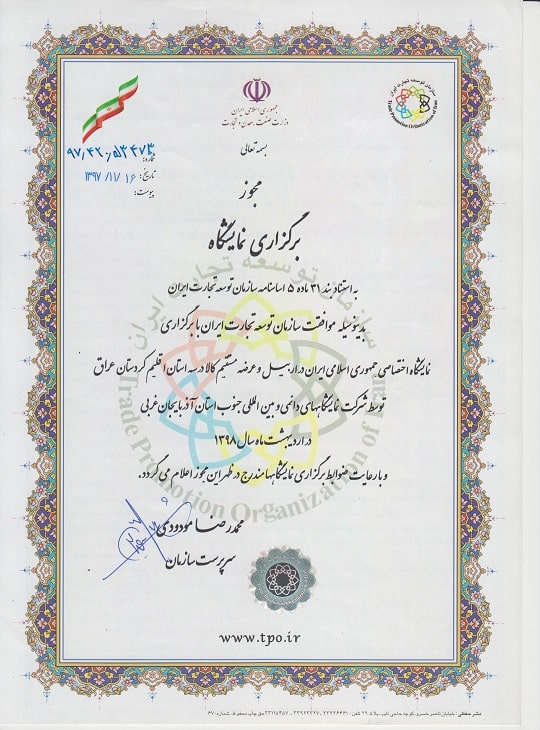 سازمان توسعه تجارت ایران
Trade Promotion Organization of Iran
جمهوری اسلامی ایران
وزارت صنعت، معدن و تجارت
بسمه تعالی
شماره:
تاریخ: ۱۳۹۷/۱۱/۱۶
پیوست:
مجوز
برگزاری نمایشگاه
به استناد بند ۳۱ ماده ۵ اساسنامه سازمان توسعه تجارت ایران
بدینوسیله موافقت سازمان توسعه تجارت ایران با برگزاری
نمایشگاه اختصاصی جمهوری اسلامی ایران در اربیل و عرضه مستقیم کالا در سه استان اقلیم کردستان عراق
توسط شرکت نمایشگاههای دائمی و بین المللی جنوب استان آذربایجان غربی
در اردیبهشت ماه سال ۱۳۹۸
و با رعایت ضوابط برگزاری نمایشگاهها مندرج در ظهر این مجوز اعلام می گردد.
سازمان توسعه تجارت ایران
Trade Promotion Organization of Iran
محمدرضا مودودی
سرپرست سازمان
www.tpo.ir